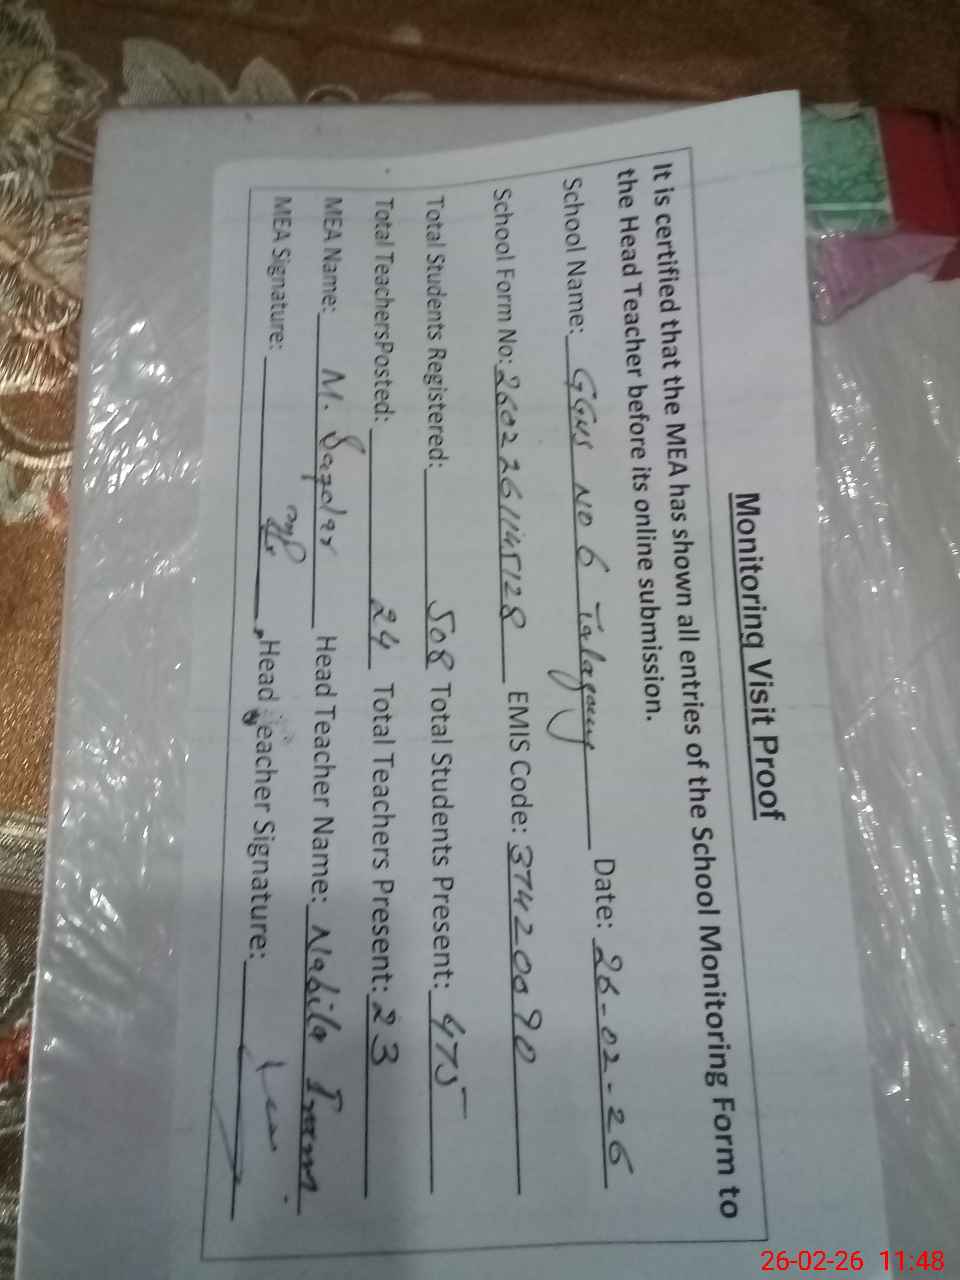 Monitoring Visit Proof
It is certified that the MEA has shown all entries of the School Monitoring Form to
the Head Teacher before its online submission.
School Name: GGHS NO 6 Talagang Date: 26-02-26
School Form No: 2602261145128 EMIS Code: 37420090
Total Students Registered: 508 Total Students Present: 475
Total TeachersPosted: 24 Total Teachers Present: 23
MEA Name: M. Safdar Head Teacher Name: Nabila
MEA Signature: , Head Teacher Signature:
26-02-26 11:48